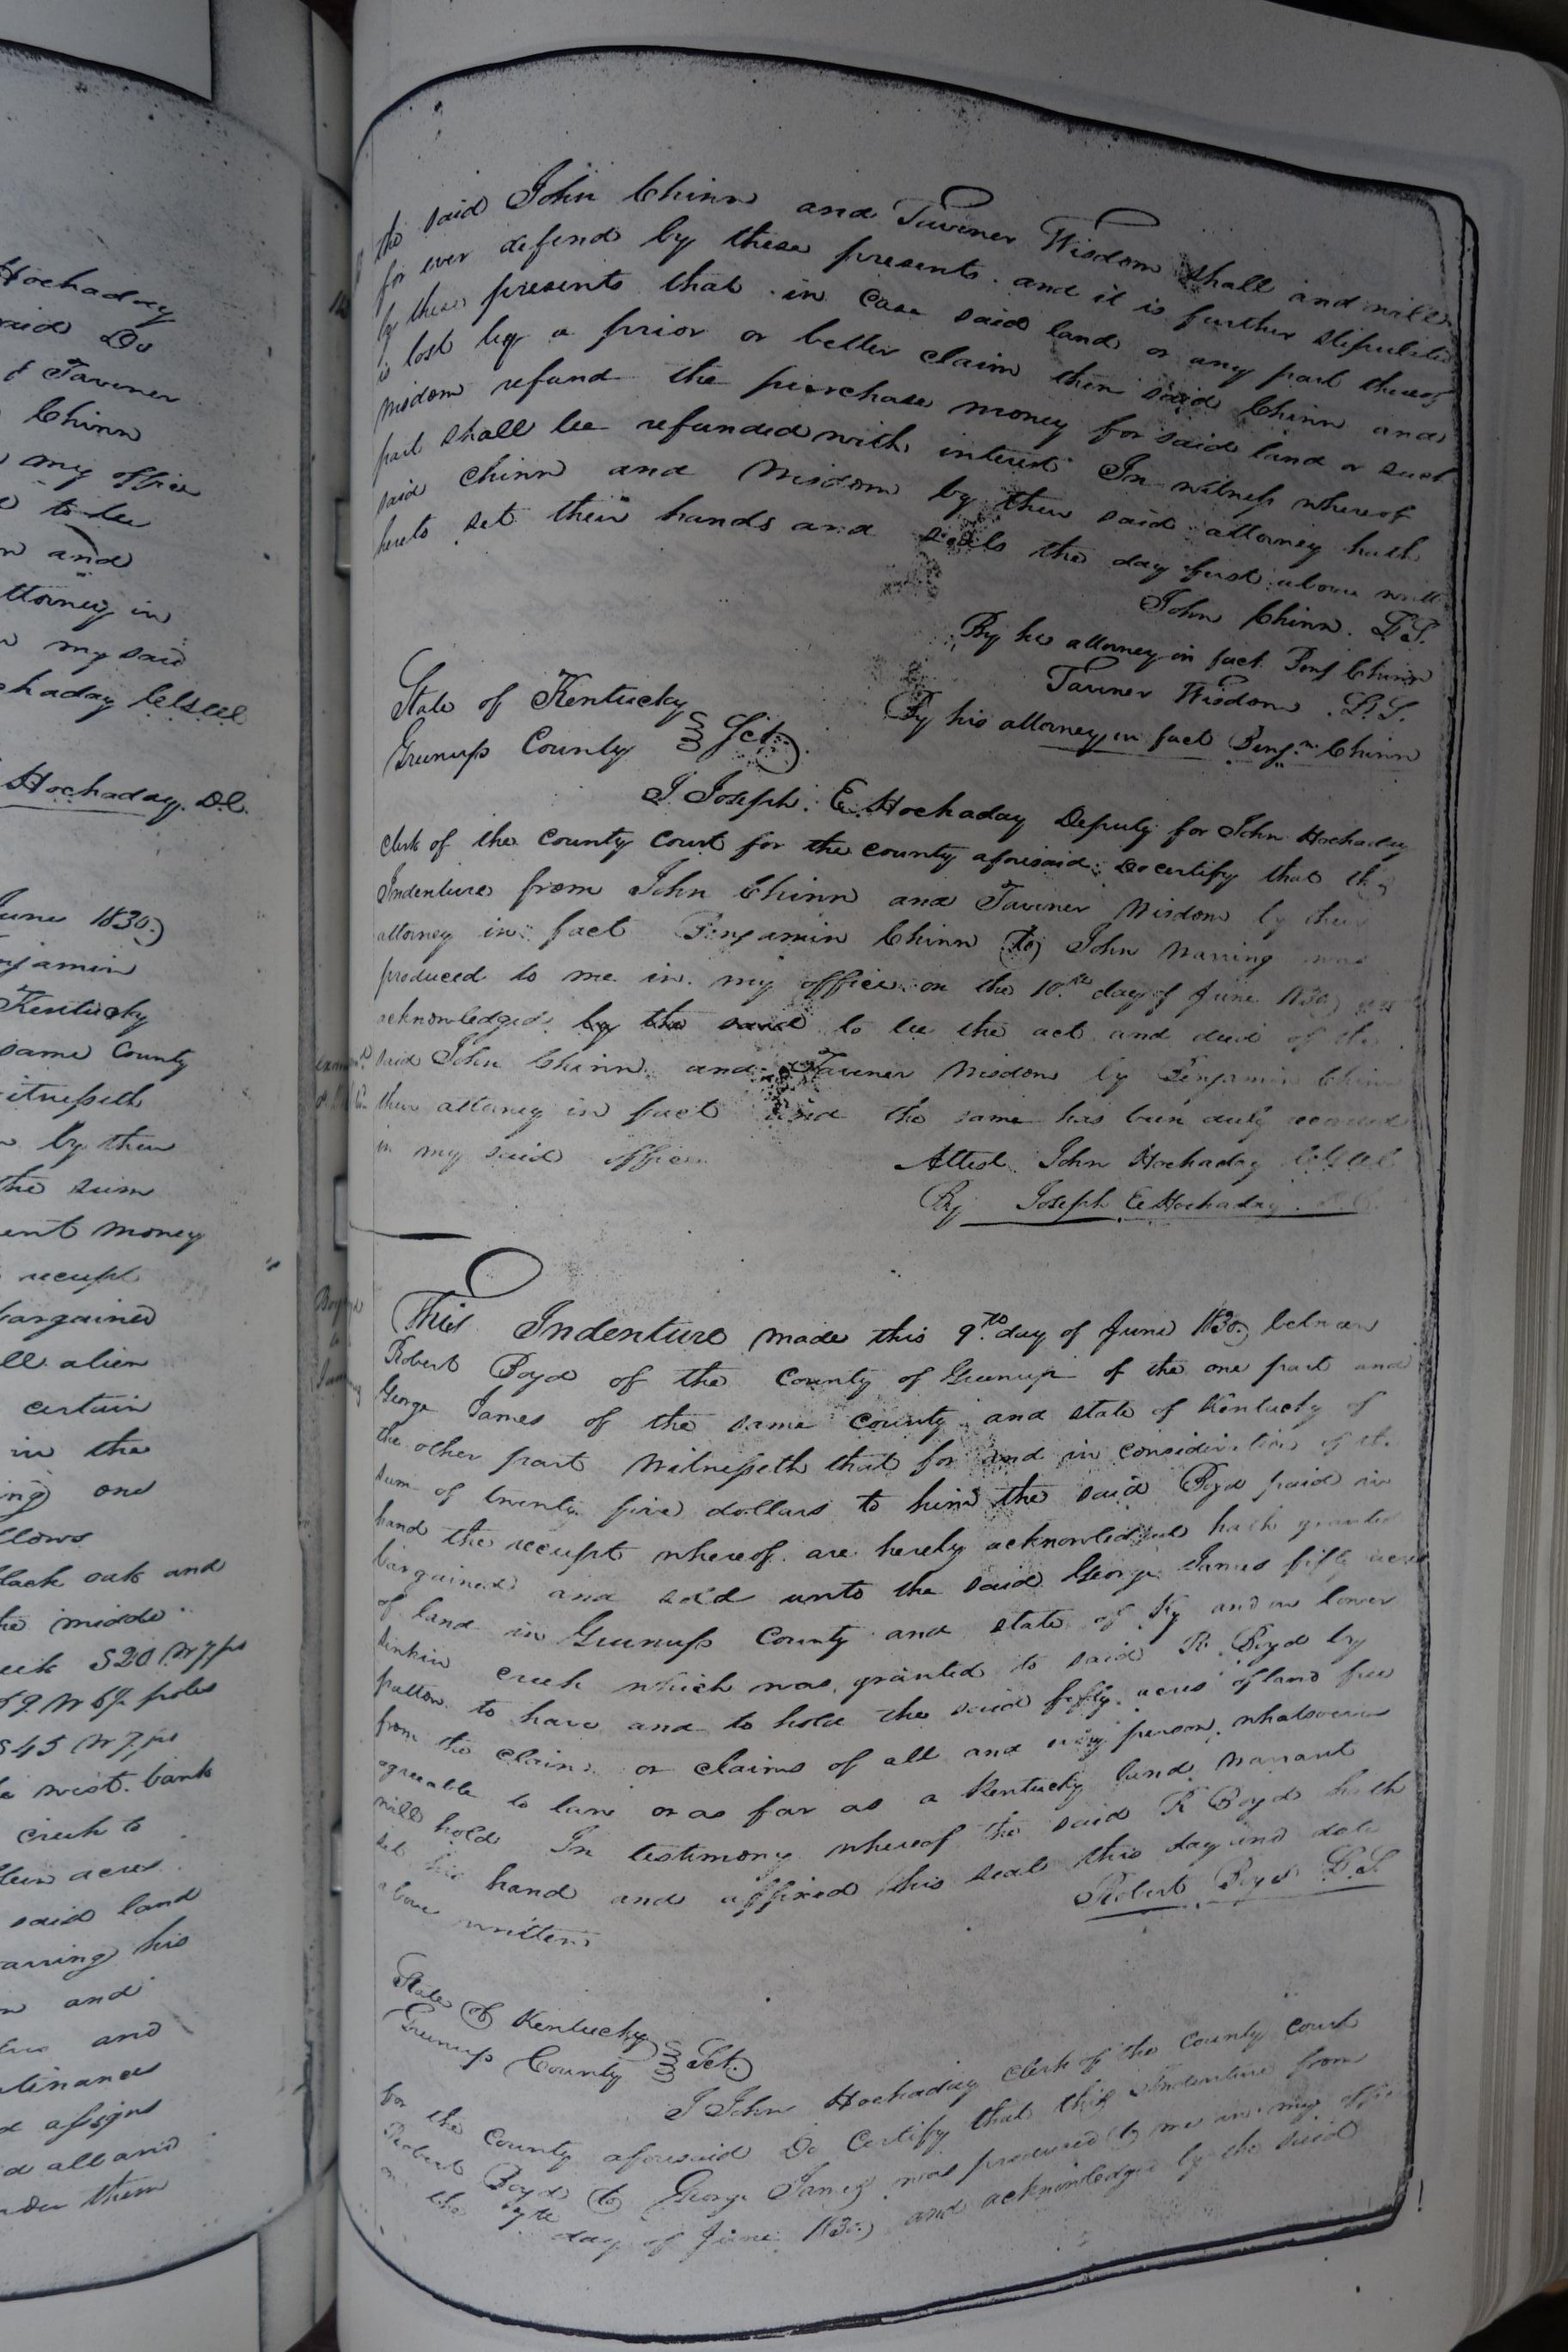 Hochaday
said Do
& Taverner
Chinn
my office
to be
and
attorney in
my said
Hochaday ClGCC
Hochaday. D.C.
June 1830
Benjamin
Kentucky
same County
Witnesseth
by their
the sum
money
receipt
bargained
alien
certain
in the
one
black oak and
the middle
S20 W 7 ps
69 W 69 poles
S45 W 7 ps
west bank
creek to
acres
said land
Warring his
and
and
assigns
all and
under them
the said John Chinn and Taverner Wisdom shall and will
for ever defend by these presents. and it is further stipulated
by these presents that in case said land or any part thereof
is lost by a prior or better claim then said Chinn and
Wisdom refund the purchase money for said land or such
part shall be refunded with interest In witness whereof
said Chinn and Wisdom by their said attorney hath
hereto set their hands and seals the day first above writt
John Chinn. L.S.
By his attorney in fact Benj Chinn
Taverner Wisdom. L.S.
By his attorney in fact Benjn Chinn
State of Kentucky
Greenup County Sct.
I Joseph. E. Hochaday Deputy for John Hochaday
Clerk of the County Court for the county aforesaid. Do certify that this
Indenture from John Chinn and Taverner Wisdom by their
attorney in fact Benjamin Chinn to John Warring was
produced to me in my office on the 10th day of June 1830
acknowledged by the said to be the act and deed of the
said John Chinn and Taverner Wisdom by Benjamin Chinn
their attorney in fact and the same has been duly recorded
in my said office
Attest. John Hochaday ClGCC
By Joseph E Hochaday. D.C.
Boyd
to
James
This Indenture made this 9th day of June 1830 between
Robert Boyd of the County of Greenup of the one part and
George James of the same County and state of Kentucky of
the other part Witnesseth that for and in consideration of the
sum of twenty five dollars to him the said Boyd paid in
hand the receipt whereof are hereby acknowledged hath granted
bargained and sold unto the said George James fifty acres
of land in Greenup County and state of Ky and on lower
Sinkin creek which was granted to said R Boyd by
patton to have and to hold the said fifty acres of land free
from the claim or claims of all and every person whatsoever
agreeable to law or as far as a Kentucky land warrant
will hold In testimony whereof the said R Boyd hath
set his hand and affixed this seal this day and date
above written
Robert Boyd L.S.
State of Kentucky
Greenup County Sct.
I John Hochaday Clerk of the County Court
for the County aforesaid Do Certify that this Indenture from
Robert Boyd to George James was produced to me in my office
on the 9th day of June 1830 and acknowledged by the said